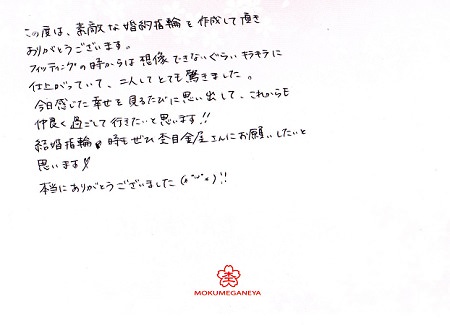 この度は、素敵な婚約指輪を作成して頂き
ありがとうございます。
フィッティングの時からは想像できないぐらいキラキラに
仕上がっていて、二人してとても驚きました。
今日感じた幸せを見るたびに思い出して、これからも
仲良く過ごして行きたいと思います!!
結婚指輪の時もぜひ杢目金屋さんにお願いしたいと
思います!!
本当にありがとうございました(o^^o)!!
杢
MOKUMEGANEYA